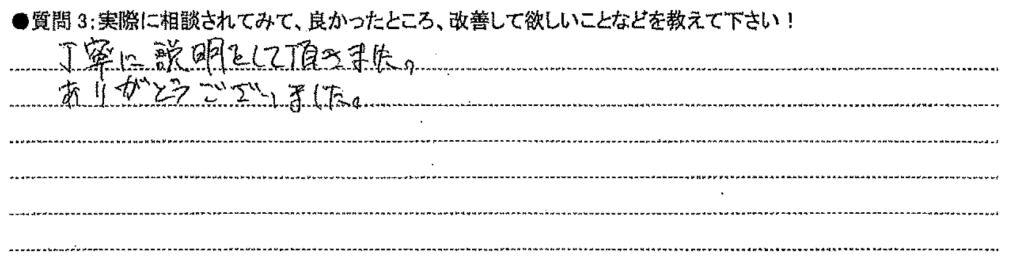 ●質問3:実際に相談されてみて、良かったところ、改善して欲しいことなどを教えて下さい！
丁寧に説明をして頂きました。
ありがとうございました。